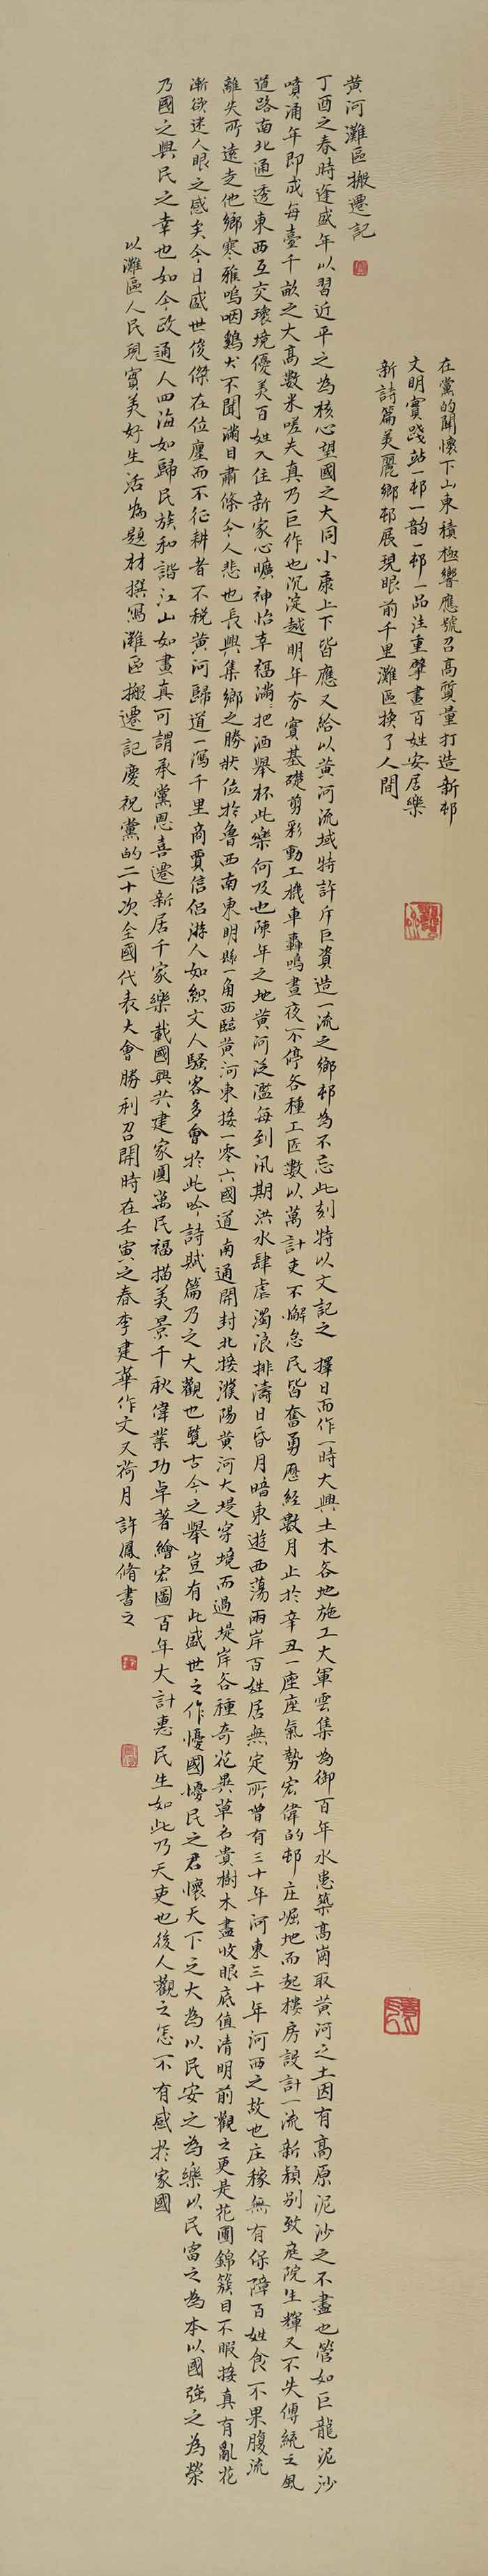 在黨的關懷下山東積極響應號召高質量打造新邨
文明實踐站一邨一韵一邨一品注重擘畫百姓安居樂
新詩篇美麗鄉邨展現眼前千里灘區換了人間
黄河灘區搬遷記
丁酉之春時逢盛年以習近平之為核心望國之大同小康上下皆應又給以黄河流域特許斥巨資造一流之鄉邨為不忘此刻特以文記之 擇日而作一時大興土木各地施工大軍雲集為御百年水患築高崗取黄河之土因有高原泥沙之不盡也管如巨龍泥沙
噴涌年即成每臺千畝之大高數米嗟夫真乃巨作也沉淀越明年夯實基礎剪彩動工機車轟鳴晝夜不停各種工匠數以萬計吏不懈怠民皆奮勇歷經數月止於辛丑一座座氣勢宏偉的邨庄崛地而起樓房設計一流新穎别致庭院生輝又不失傳統之風
道路南北通透東西互交環境優美百姓入住新家心曠神怡幸福滿滿把酒舉杯此樂何及也陳年之地黄河泛濫每到汛期洪水肆虐濁浪排濤日昏月暗東遊西蕩兩岸百姓居無定所曾有三十年河東三十年河西之故也庄稼無有保障百姓食不果腹流
離失所遠走他鄉寒雅嗚咽鷄犬不聞滿目肅條令人悲也長興集鄉之勝狀位於魯西南東明縣一角西臨黄河東接一零六國道南通開封北接濮陽黄河大堤穿境而過堤岸各種奇花異草名貴樹木盡收眼底值清明前觀之更是花團錦簇目不暇接真有亂花
漸欲迷人眼之感矣今日盛世俊傑在位廛而不征耕者不税黄河歸道一瀉千里商賈信侣游人如織文人騷客多會於此吟詩賦篇乃之大觀也覽古今之舉豈有此盛世之作憂國憂民之君懷天下之大為以民安之為樂以民富之為本以國強之為榮
乃國之興民之幸也如今政通人四海如歸民族和諧江山如畫真可謂承黨恩喜遷新居千家樂載國興共建家園萬民福描美景千秋偉業功卓著繪宏圖百年大計惠民生如此乃天吏也後人觀之怎不有感於家國
以灘區人民現實美好生活為題材撰寫灘區搬遷記慶祝黨的二十次全國代表大會勝利召開時在壬寅之春李建華作文又荷月許鳳脩書之